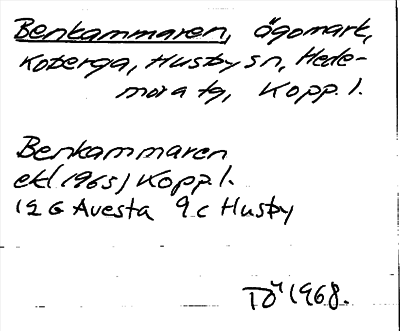 Benkammaren, ägomark,
Koberga, Husby sn, Hede-
mora tg, Kopp. l.
Benkammaren
ekl (1965) Kopp. l.
12 G Avesta 9 c Husby
TÖ 1968.